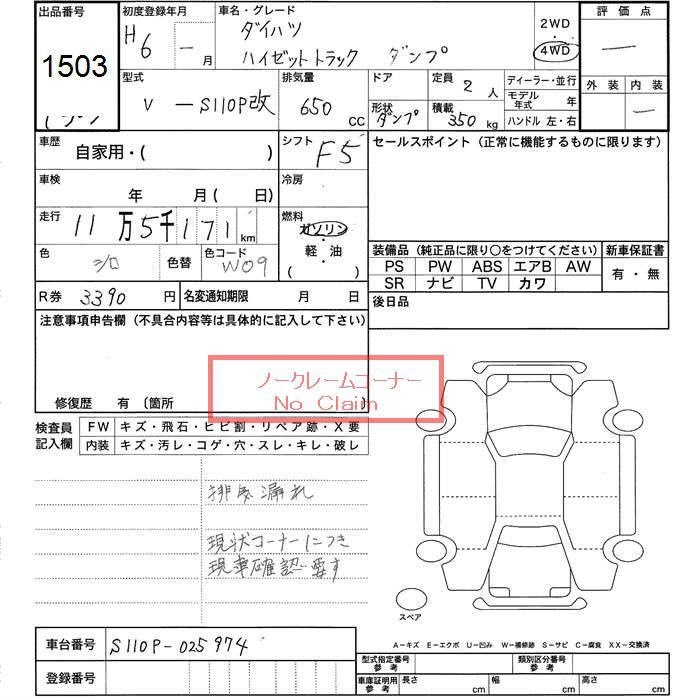 出品番号 初度登録年月 車名・グレード 2WD 評価点
1503 H6 — 月 ダイハツ ハイゼットトラック ダンプ 4WD —
型式 排気量 ドア 定員 ディーラー・並行 外装 内装
V — S110P改 650 CC 形状 ダンプ 2 人 積載 350 kg モデル年式 年 ハンドル 左・右 —
車歴 自家用・( ) シフト F5 セールスポイント (正常に機能するものに限ります)
車検 年 月 ( 日) 冷房
走行 11万5千171 km 燃料 ガソリン・軽・油 ( )
色 シロ 色替 色コード W09
装備品 (純正品に限り○をつけてください) 新車保証書
PS PW ABS エアB AW 有・無
SR ナビ TV カワ
R券 3390 円 名変通知期限 月 日 後日品
注意事項申告欄 (不具合内容等は具体的に記入して下さい)
ノークレームコーナー
No Claim
修復歴 有 〔箇所 〕
検査員記入欄 FW キズ・飛石・ヒビ割・リペア跡・X要
内装 キズ・汚レ・コゲ・穴・スレ・キレ・破レ
排気漏れ
現状コーナーにつき
現車確認要す
スペア
A-キズ E-エクボ U-凹み W-補修跡 S-サビ C-腐食 XX-交換済
車台番号 S110P-025974
型式指定番号 参考 類別区分番号 参考
登録番号
車庫証明用 参考 長さ cm 幅 cm 高さ cm